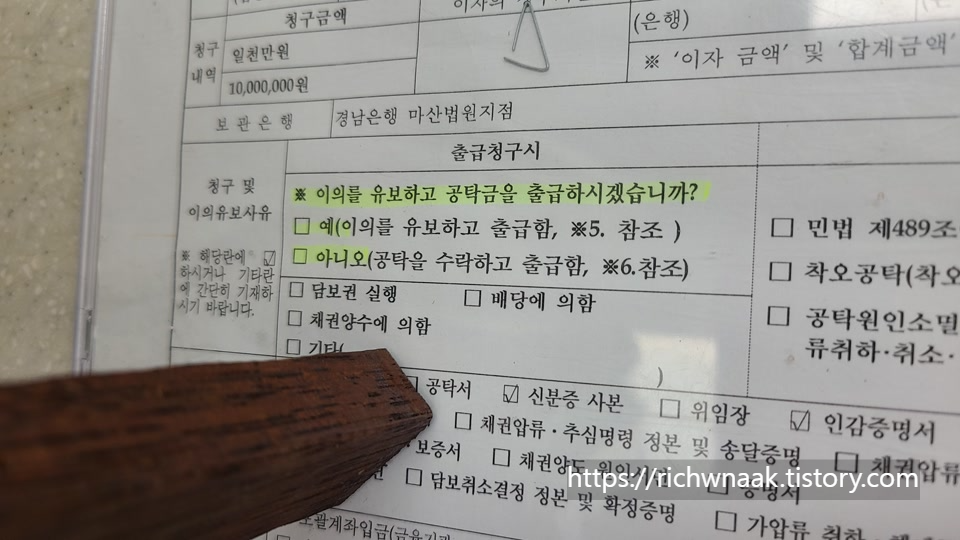 청구금액
(은행)
청구
내역
일천만원
10,000,000원
※ '이자 금액' 및 '합계금액'
보 관 은 행
경남은행 마산법원지점
출급청구시
청구 및
이의유보사유
※ 해당란에 ☑
하시거나 기타란
에 간단히 기재하
시기 바랍니다.
※ 이의를 유보하고 공탁금을 출급하시겠습니까?
☐ 예(이의를 유보하고 출급함, ※5. 참조 )
☐ 아니오(공탁을 수락하고 출급함, ※6.참조)
☐ 담보권 실행 ☐ 배당에 의함
☐ 채권양수에 의함
☐ 기타( )
☐ 민법 제489조
☐ 착오공탁(착오
☐ 공탁원인소멸
류취하·취소·
공탁서 ☑ 신분증 사본 ☐ 위임장 ☑ 인감증명서
☐ 채권압류·추심명령 정본 및 송달증명 ☐ 채권압류
보증서 ☐ 채권양도
증명서
☐ 담보취소결정 정본 및 확정증명 ☐ 가압류
https://richwnaak.tistory.com